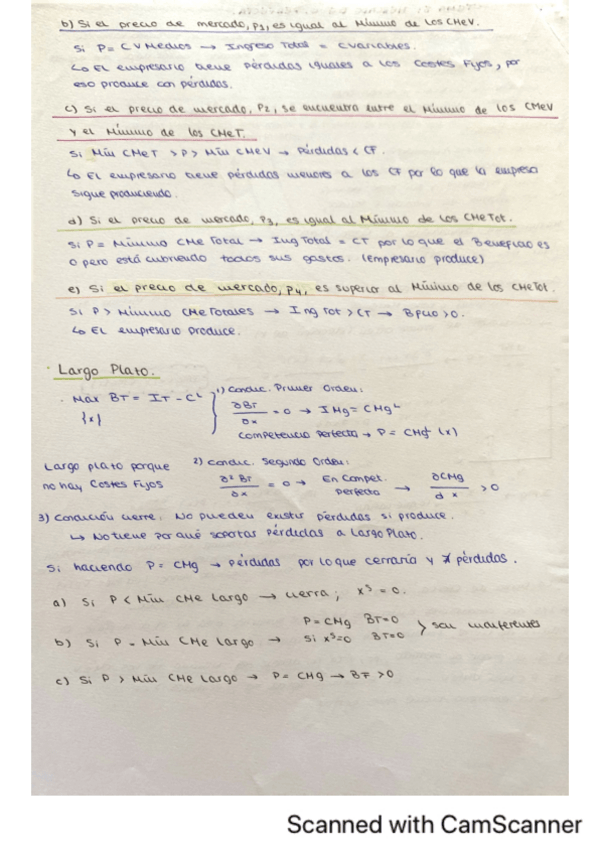 b) Si el precio de mercado, P1, es igual al Mínimo de los CMeV.
Si P = CVMedios → Ingreso Total = CVariables.
↳ El empresario tiene pérdidas iguales a los Costes Fijos, por
eso produce con pérdidas.
c) Si el precio de mercado, P2, se encuentra entre el Mínimo de los CMeV
y el Mínimo de los CMeT.
Si Mín CMeT > P > Mín CMeV → Pérdidas < CF.
↳ El empresario tiene pérdidas menores a los CF por lo que la empresa
sigue produciendo.
d) Si el precio de mercado, P3, es igual al Mínimo de los CMeTot.
Si P = Mínimo CMe Total → Ing Total = CT por lo que el Beneficio es
0 pero está cubriendo todos sus gastos. (empresario produce)
e) Si el precio de mercado, P4, es superior al Mínimo de los CMeTot.
Si P > Mínimo CMeTotales → Ing Tot > CT → Bfcio > 0.
↳ El empresario produce.
Largo Plazo.
Max BT = IT - C^L
{x}
1) Condic. Primer Orden:
∂BT/∂x = 0 → IMg = CMg^L
Competencia Perfecta → P = CMg^L (x)
Largo plazo porque
no hay Costes Fijos
2) Condic. Segundo Orden:
∂² BT/∂x = 0 → En Compet. Perfecta → ∂CMg/d x > 0
3) Condición cierre. No pueden existir pérdidas si produce.
↳ No tiene por qué soportar pérdidas a Largo Plazo.
Si haciendo P = CMg → pérdidas por lo que cerraría y ∄ pérdidas.
a) Si P < Mín CMe Largo → cierra; x^s = 0.
b) Si P = Mín CMe Largo → P = CMg BT=0
Si x^s=0 BT=0 } son indiferentes
c) Si P > Mín CMe Largo → P = CMg → BT > 0
Scanned with CamScanner